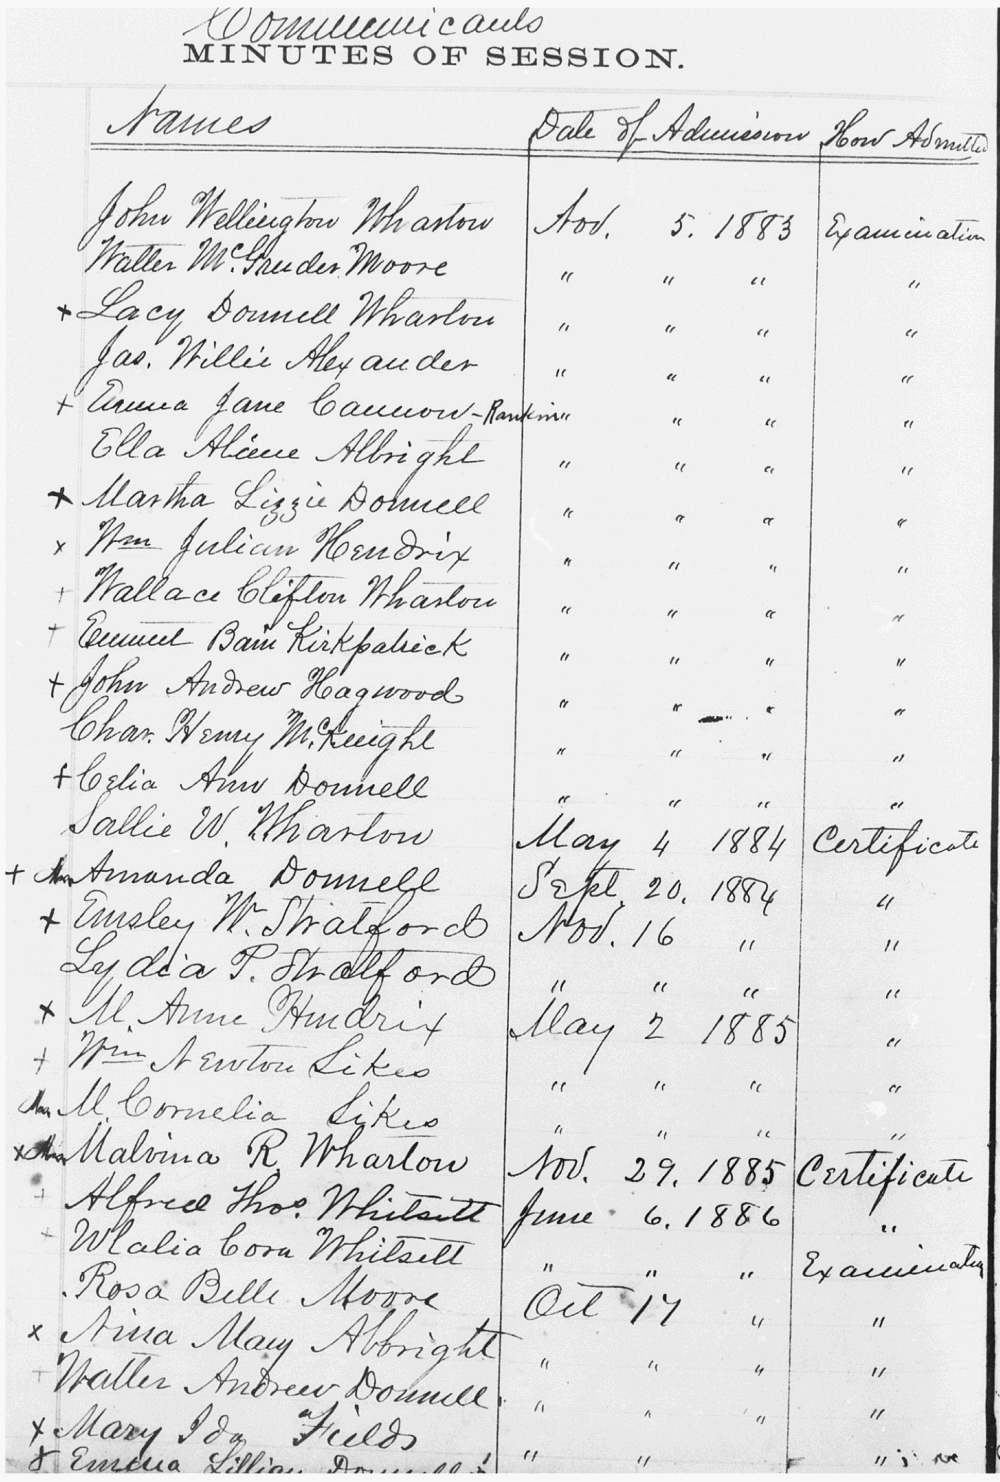 Communicants
MINUTES OF SESSION.
Names Date of Admission How Admitted
John Wellington Wharton Nov. 5. 1883 Examination
Walter McGruder Moore " " " "
+ Lacy Donnell Wharton " " " "
Jas. Willie Alexander " " " "
+ Emma Jane Cannon - Rankin " " " "
Ella Aliene Albright " " " "
+ Martha Lizzie Donnell " " " "
x Wm Julian Hendrix " " " "
+ Wallace Clifton Wharton " " " "
+ Emmet Bain Kirkpatrick " " " "
+ John Andrew Hagwood " " " "
Chas. Henry McKnight " " " "
+ Celia Ann Donnell " " " "
Sallie W. Wharton May 4 1884 Certificate
+ Mrs Amanda Donnell Sept. 20. 1884 "
+ Emsley W. Stratford Nov. 16 " "
Lydia P. Stratford " " " "
+ M. Anne Hendrix May 2 1885 "
+ Wm Newton Sikes " " " "
Mrs M. Cornelia Sikes " " " "
x Mrs Malvina R. Wharton Nov. 29. 1885 Certificate
+ Alfred Thos. Whitsett June 6. 1886 "
+ Ulalia Cora Whitsett " " " Examination
Rosa Belle Moore Oct 17 " "
x Nina May Albright " " " "
+ Walter Andrew Donnell. " " " "
x Mary Ida Fields " " " "
x Emma Lillian Donnell